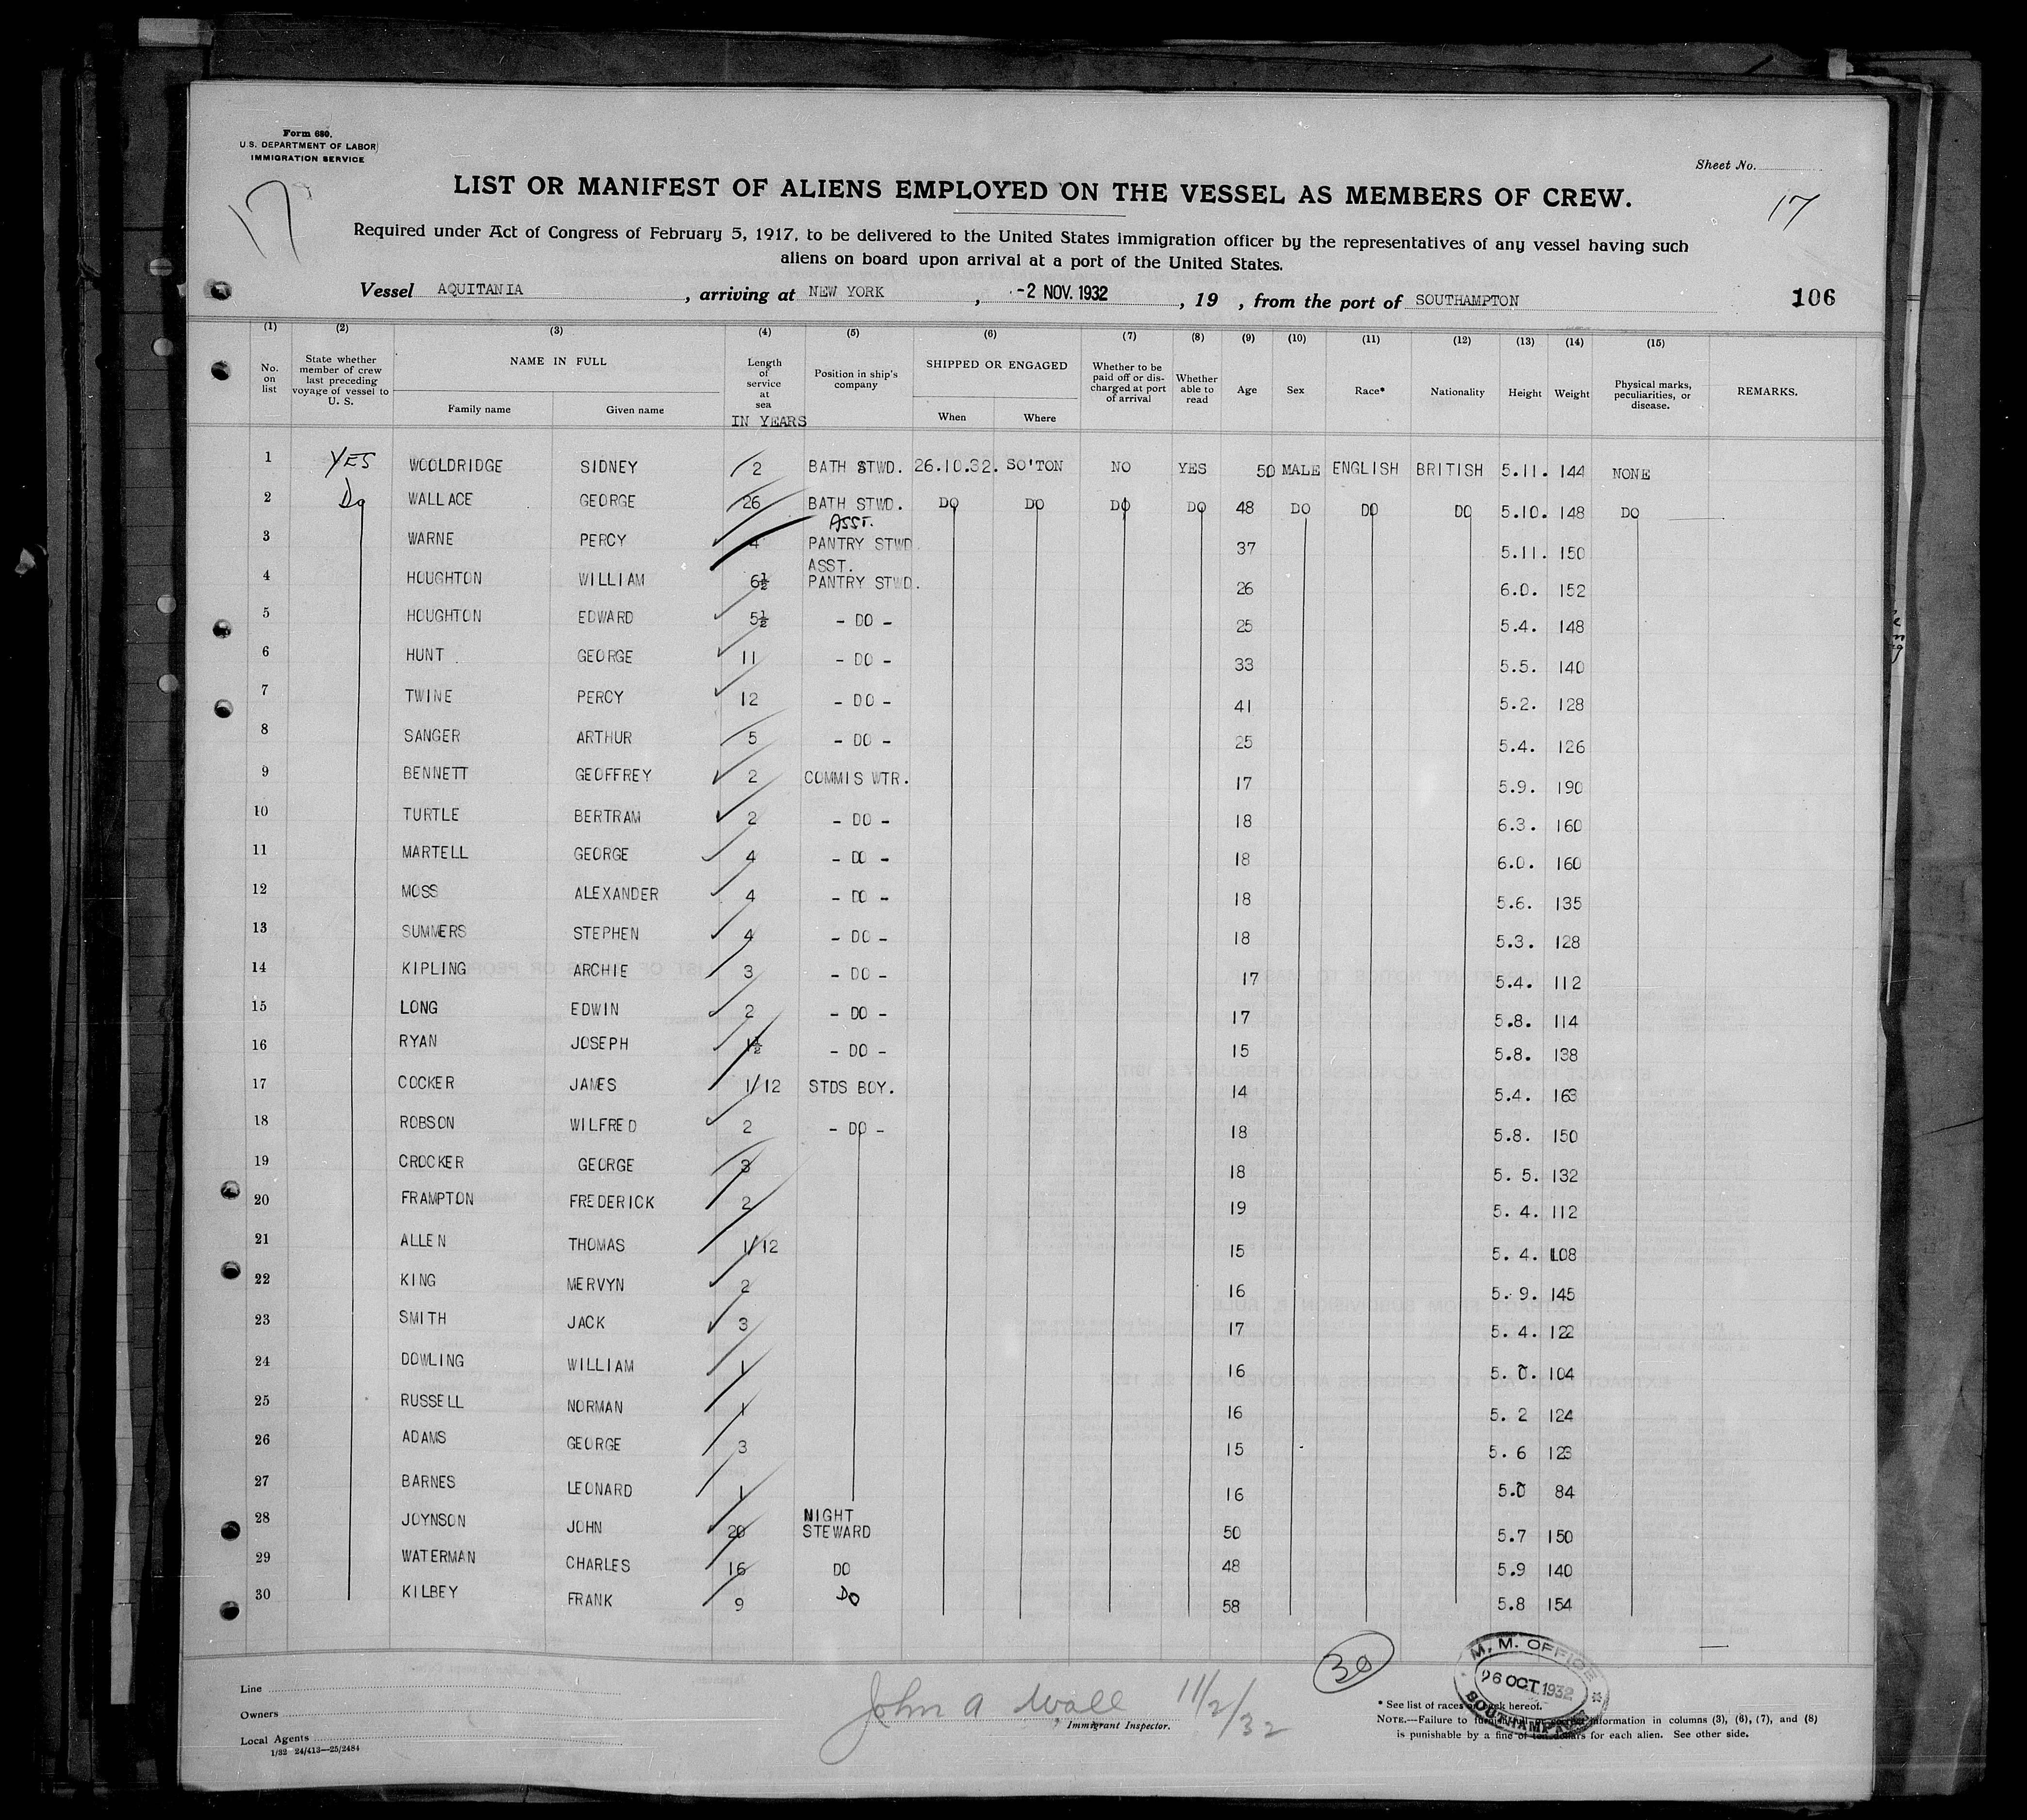 Form 680.
U.S. DEPARTMENT OF LABOR
IMMIGRATION SERVICE
Sheet No.
17
LIST OR MANIFEST OF ALIENS EMPLOYED ON THE VESSEL AS MEMBERS OF CREW.
17
Required under Act of Congress of February 5, 1917, to be delivered to the United States immigration officer by the representatives of any vessel having such
aliens on board upon arrival at a port of the United States.
Vessel AQUITANIA, arriving at NEW YORK, -2 NOV. 1932, 19 , from the port of SOUTHAMPTON 106
(1) (2) (3) (4) (5) (6) (7) (8) (9) (10) (11) (12) (13) (14) (15)
No. on list State whether member of crew last preceding voyage of vessel to U. S. NAME IN FULL Family name Given name Length of service at sea IN YEARS Position in ship's company SHIPPED OR ENGAGED When Where Whether to be paid off or discharged at port of arrival Whether able to read Age Sex Race* Nationality Height Weight Physical marks, peculiarities, or disease. REMARKS.
1 YES WOOLDRIDGE SIDNEY 2 BATH STWD. 26.10.32. SO'TON NO YES 50 MALE ENGLISH BRITISH 5.11. 144 NONE
2 Do WALLACE GEORGE 26 BATH STWD. DO DO DO DO 48 DO DO DO 5.10. 148 DO
3 WARNE PERCY 4 ASST. PANTRY STWD 37 5.11. 150
4 HOUGHTON WILLIAM 6½ ASST. PANTRY STWD. 26 6.0. 152
5 HOUGHTON EDWARD 5½ - DO - 25 5.4. 148
6 HUNT GEORGE 11 - DO - 33 5.5. 140
7 TWINE PERCY 12 - DO - 41 5.2. 128
8 SANGER ARTHUR 5 - DO - 25 5.4. 126
9 BENNETT GEOFFREY 2 COMMIS WTR. 17 5.9. 190
10 TURTLE BERTRAM 2 - DO - 18 6.3. 160
11 MARTELL GEORGE 4 - DO - 18 6.0. 160
12 MOSS ALEXANDER 4 - DO - 18 5.6. 135
13 SUMMERS STEPHEN 4 - DO - 18 5.3. 128
14 KIPLING ARCHIE 3 - DO - 17 5.4. 112
15 LONG EDWIN 2 - DO - 17 5.8. 114
16 RYAN JOSEPH 1½ - DO - 15 5.8. 138
17 COCKER JAMES 1/12 STDS BOY. 14 5.4. 163
18 ROBSON WILFRED 2 - DO - 18 5.8. 150
19 CROCKER GEORGE 3 18 5. 5. 132
20 FRAMPTON FREDERICK 2 19 5. 4. 112
21 ALLEN THOMAS 1/12 15 5. 4. 108
22 KING MERVYN 2 16 5. 9. 145
23 SMITH JACK 3 17 5. 4. 122
24 DOWLING WILLIAM 1 16 5. 0. 104
25 RUSSELL NORMAN 1 16 5. 2 124
26 ADAMS GEORGE 3 15 5. 6 123
27 BARNES LEONARD 1 16 5.0 84
28 JOYNSON JOHN 20 NIGHT STEWARD 50 5.7 150
29 WATERMAN CHARLES 16 DO 48 5.9 140
30 KILBEY FRANK 9 DO 58 5.8 154
30
M. M. OFFICE
26 OCT 1932
SOUTHAMPTON
Line
Owners
Local Agents
1/32 24/413—25/2484
John A Wall 11/2/32
Immigrant Inspector.
* See list of races on back hereof.
NOTE.—Failure to furnish full or correct information in columns (3), (6), (7), and (8)
is punishable by a fine of ten dollars for each alien. See other side.